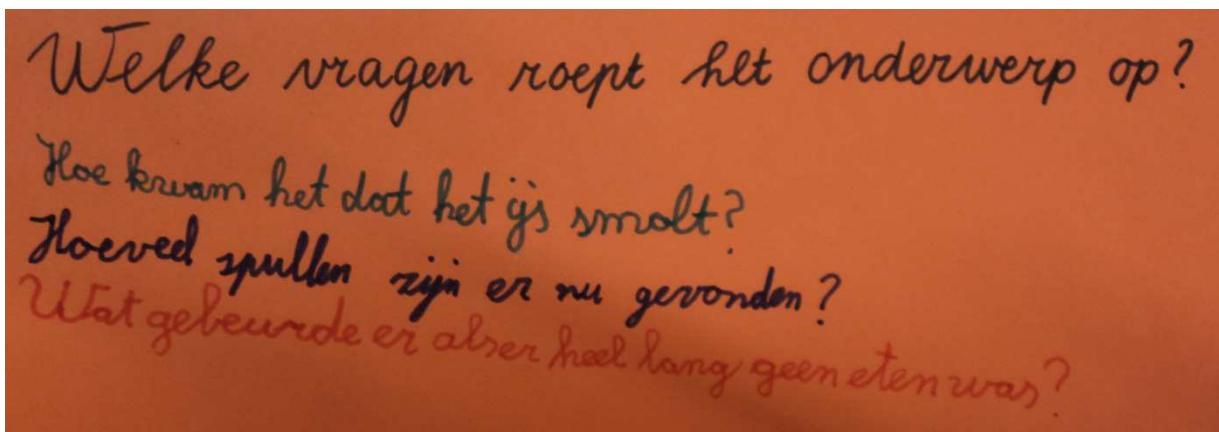 Welke vragen roept het onderwerp op?
Hoe kwam het dat het ijs smolt?
Hoeveel spullen zijn er nu gevonden?
Wat gebeurde er als er heel lang geen eten was?